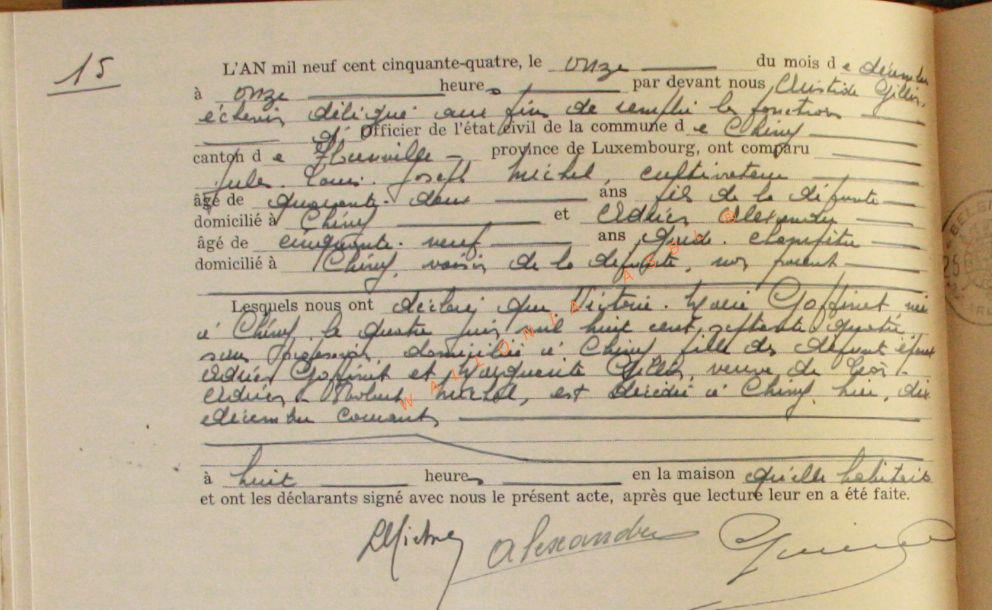 15
L'AN mil neuf cent cinquante-quatre, le onze du mois d e décembre
à onze heures par devant nous Aristide Gillet,
échevin délégué aux fins de remplir les fonctions
d' Officier de l'état civil de la commune d e Chiny
canton d e Florenville province de Luxembourg, ont comparu
Jules. Louis. Joseph Michel, cultivateur
âgé de quarante. deux ans fils de la défunte
domicilié à Chiny et Adrien Alexandre
âgé de cinquante. neuf ans garde. champêtre
domicilié à Chiny, voisin de la défunte, non parent
Lesquels nous ont déclaré que Victorie. Marie Goffinet, née
à Chiny le quatre juin mil huit cent septante quatre
sans profession, domiciliée à Chiny, fille des défunts époux
Adrien Goffinet et Marguerite Gillet, veuve de
Adrien Michel, est décédée à Chiny, hier, dix
décembre courant
à huit heures en la maison qu'elle habitait
et ont les déclarants signé avec nous le présent acte, après que lecture leur en a été faite.
Alexandre
WALLONIA ASBL ©